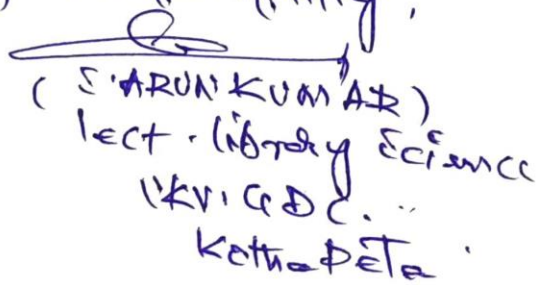 ( S. ARUN KUMAR )
lect. library Science
VKV. GDC.
KothaPeta.